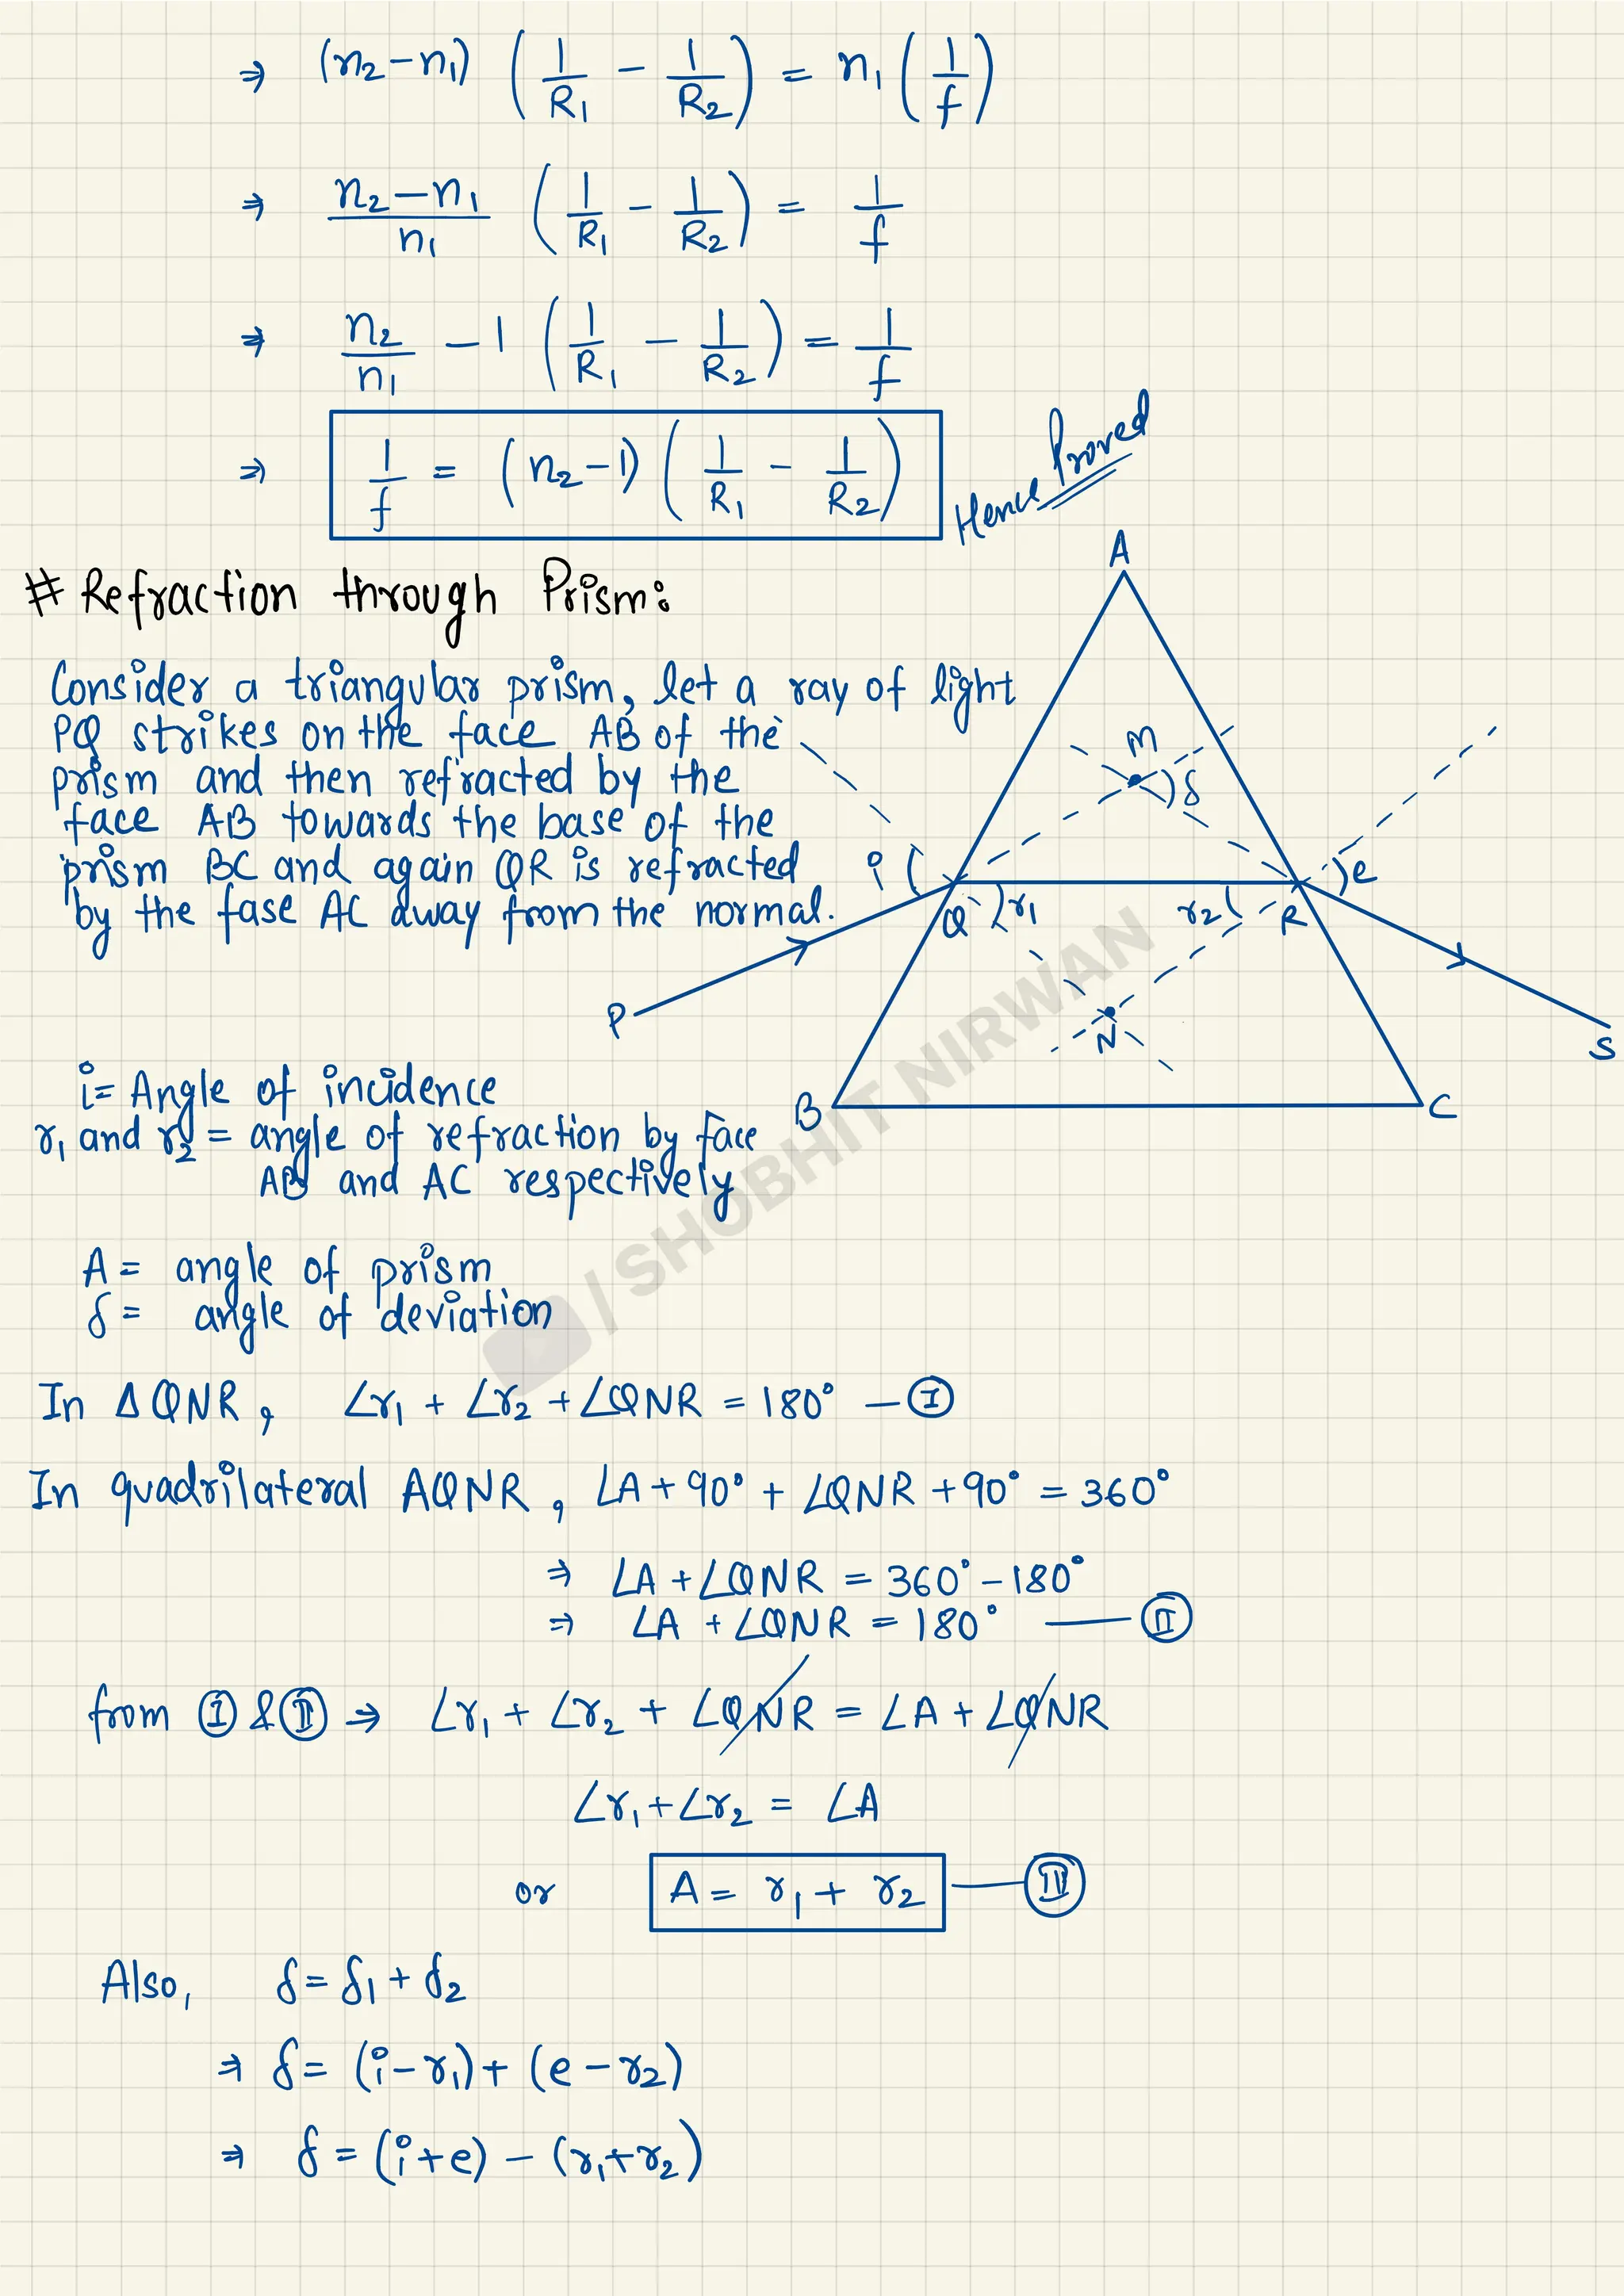 ⇒ (n₂-n₁) (1/R₁ - 1/R₂) = n₁ (1/f)
⇒ (n₂-n₁)/n₁ (1/R₁ - 1/R₂) = 1/f
⇒ n₂/n₁ - 1 (1/R₁ - 1/R₂) = 1/f
⇒ 1/f = (n₂-1) (1/R₁ - 1/R₂)
Hence Proved
# Refraction through Prism:
Consider a triangular prism, let a ray of light
PQ strikes on the face AB of the
prism and then refracted by the
face AB towards the base of the
prism BC and again QR is refracted
by the fase AC away from the normal.
A
M
δ
i
e
Q
r₁
r₂
R
P
N
S
B
C
i = Angle of incidence
r₁ and r₂ = angle of refraction by face
AB and AC respectively
A = angle of prism
δ = angle of deviation
In Δ QNR, ∠r₁ + ∠r₂ + ∠QNR = 180° — Ⓘ
In quadrilateral AQNR, ∠A + 90° + ∠QNR + 90° = 360°
⇒ ∠A + ∠QNR = 360° - 180°
⇒ ∠A + ∠QNR = 180° — II
from I & II → ∠r₁ + ∠r₂ + ∠QNR = ∠A + ∠QNR
∠r₁ + ∠r₂ = ∠A
or A = r₁ + r₂ — III
Also, δ = δ₁ + δ₂
⇒ δ = (i - r₁) + (e - r₂)
⇒ δ = (i + e) - (r₁ + r₂)
/ SHOBHIT NIRWAN